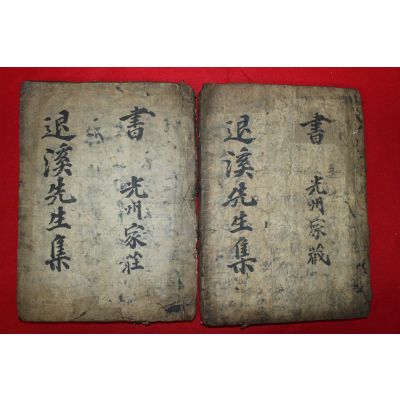 書
光州家藏
退溪先生集
書
光州家莊
退溪先生集